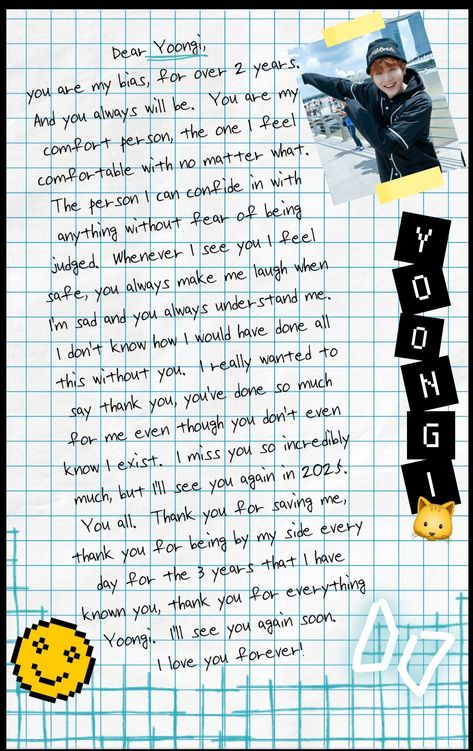 Dear Yoongi,
you are my bias, for over 2 years.
And you always will be. You are my
comfort person, the one I feel
comfortable with no matter what.
The person I can confide in with
anything without fear of being
judged. Whenever I see you I feel
safe, you always make me laugh when
I'm sad and you always understand me.
I don't know how I would have done all
this without you. I really wanted to
say thank you, you've done so much
for me even though you don't even
know I exist. I miss you so incredibly
much, but I'll see you again in 2025.
You all. Thank you for saving me,
thank you for being by my side every
day for the 3 years that I have
known you, thank you for everything
Yoongi. I'll see you again soon.
I love you forever!
YOONGI